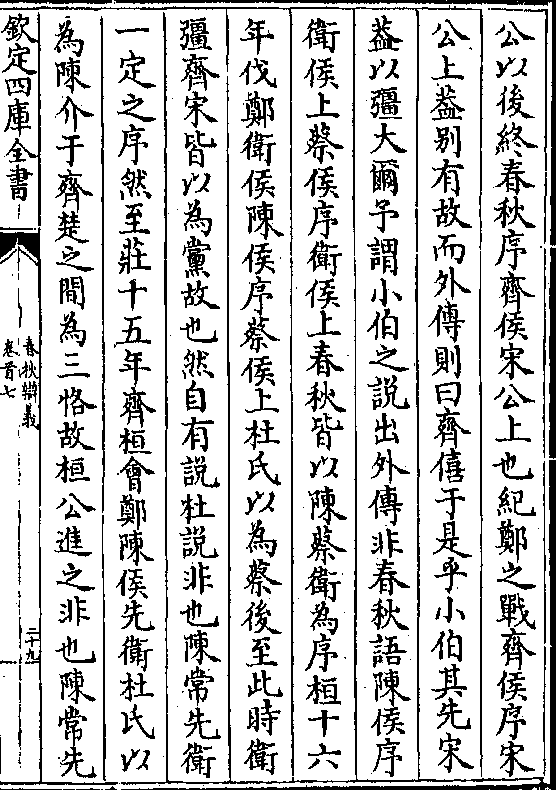 公以後終春秋序齊侯宋公上也紀鄭之戰齊侯序宋
公上葢别有故而外傳則曰齊僖于是乎小伯其先宋
葢以彊大爾予謂小伯之説出外傳非春秋語陳侯序
衛侯上蔡侯序衛侯上春秋皆以陳蔡衛為序桓十六
年伐鄭衛侯陳侯序蔡侯上杜氏以為蔡後至此時衛
彊齊宋皆以為黨故也然自有説杜説非也陳常先衛
一定之序然至莊十五年齊桓會鄭陳侯先衛杜氏以
為陳介于齊楚之間為三恪故桓公進之非也陳常先
欽定四庫全書
春秋辯義
卷首七
二十九